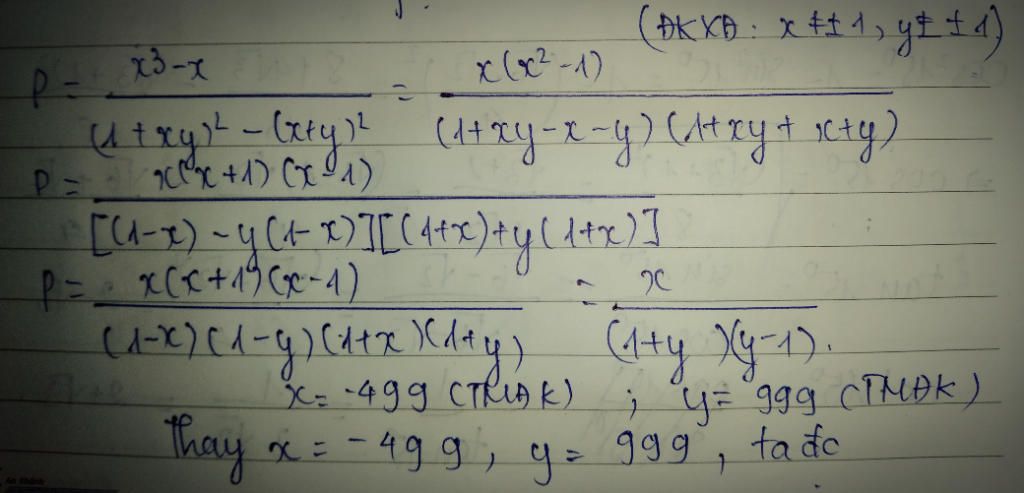 (ĐKXĐ: x ≠ ± 1, y ≠ ± 1)
P = x³-x / (1+xy)² - (x+y)² = x(x²-1) / (1+xy-x-y)(1+xy+x+y)
P = x(x+1)(x-1) / [(1-x)-y(1-x)][(1+x)+y(1+x)]
P = x(x+1)(x-1) / (1-x)(1-y)(1+x)(1+y) = x / (1+y)(y-1).
x = -499 (TMĐK) ; y = 999 (TMĐK)
Thay x = -499, y = 999, ta đc
An Khánh